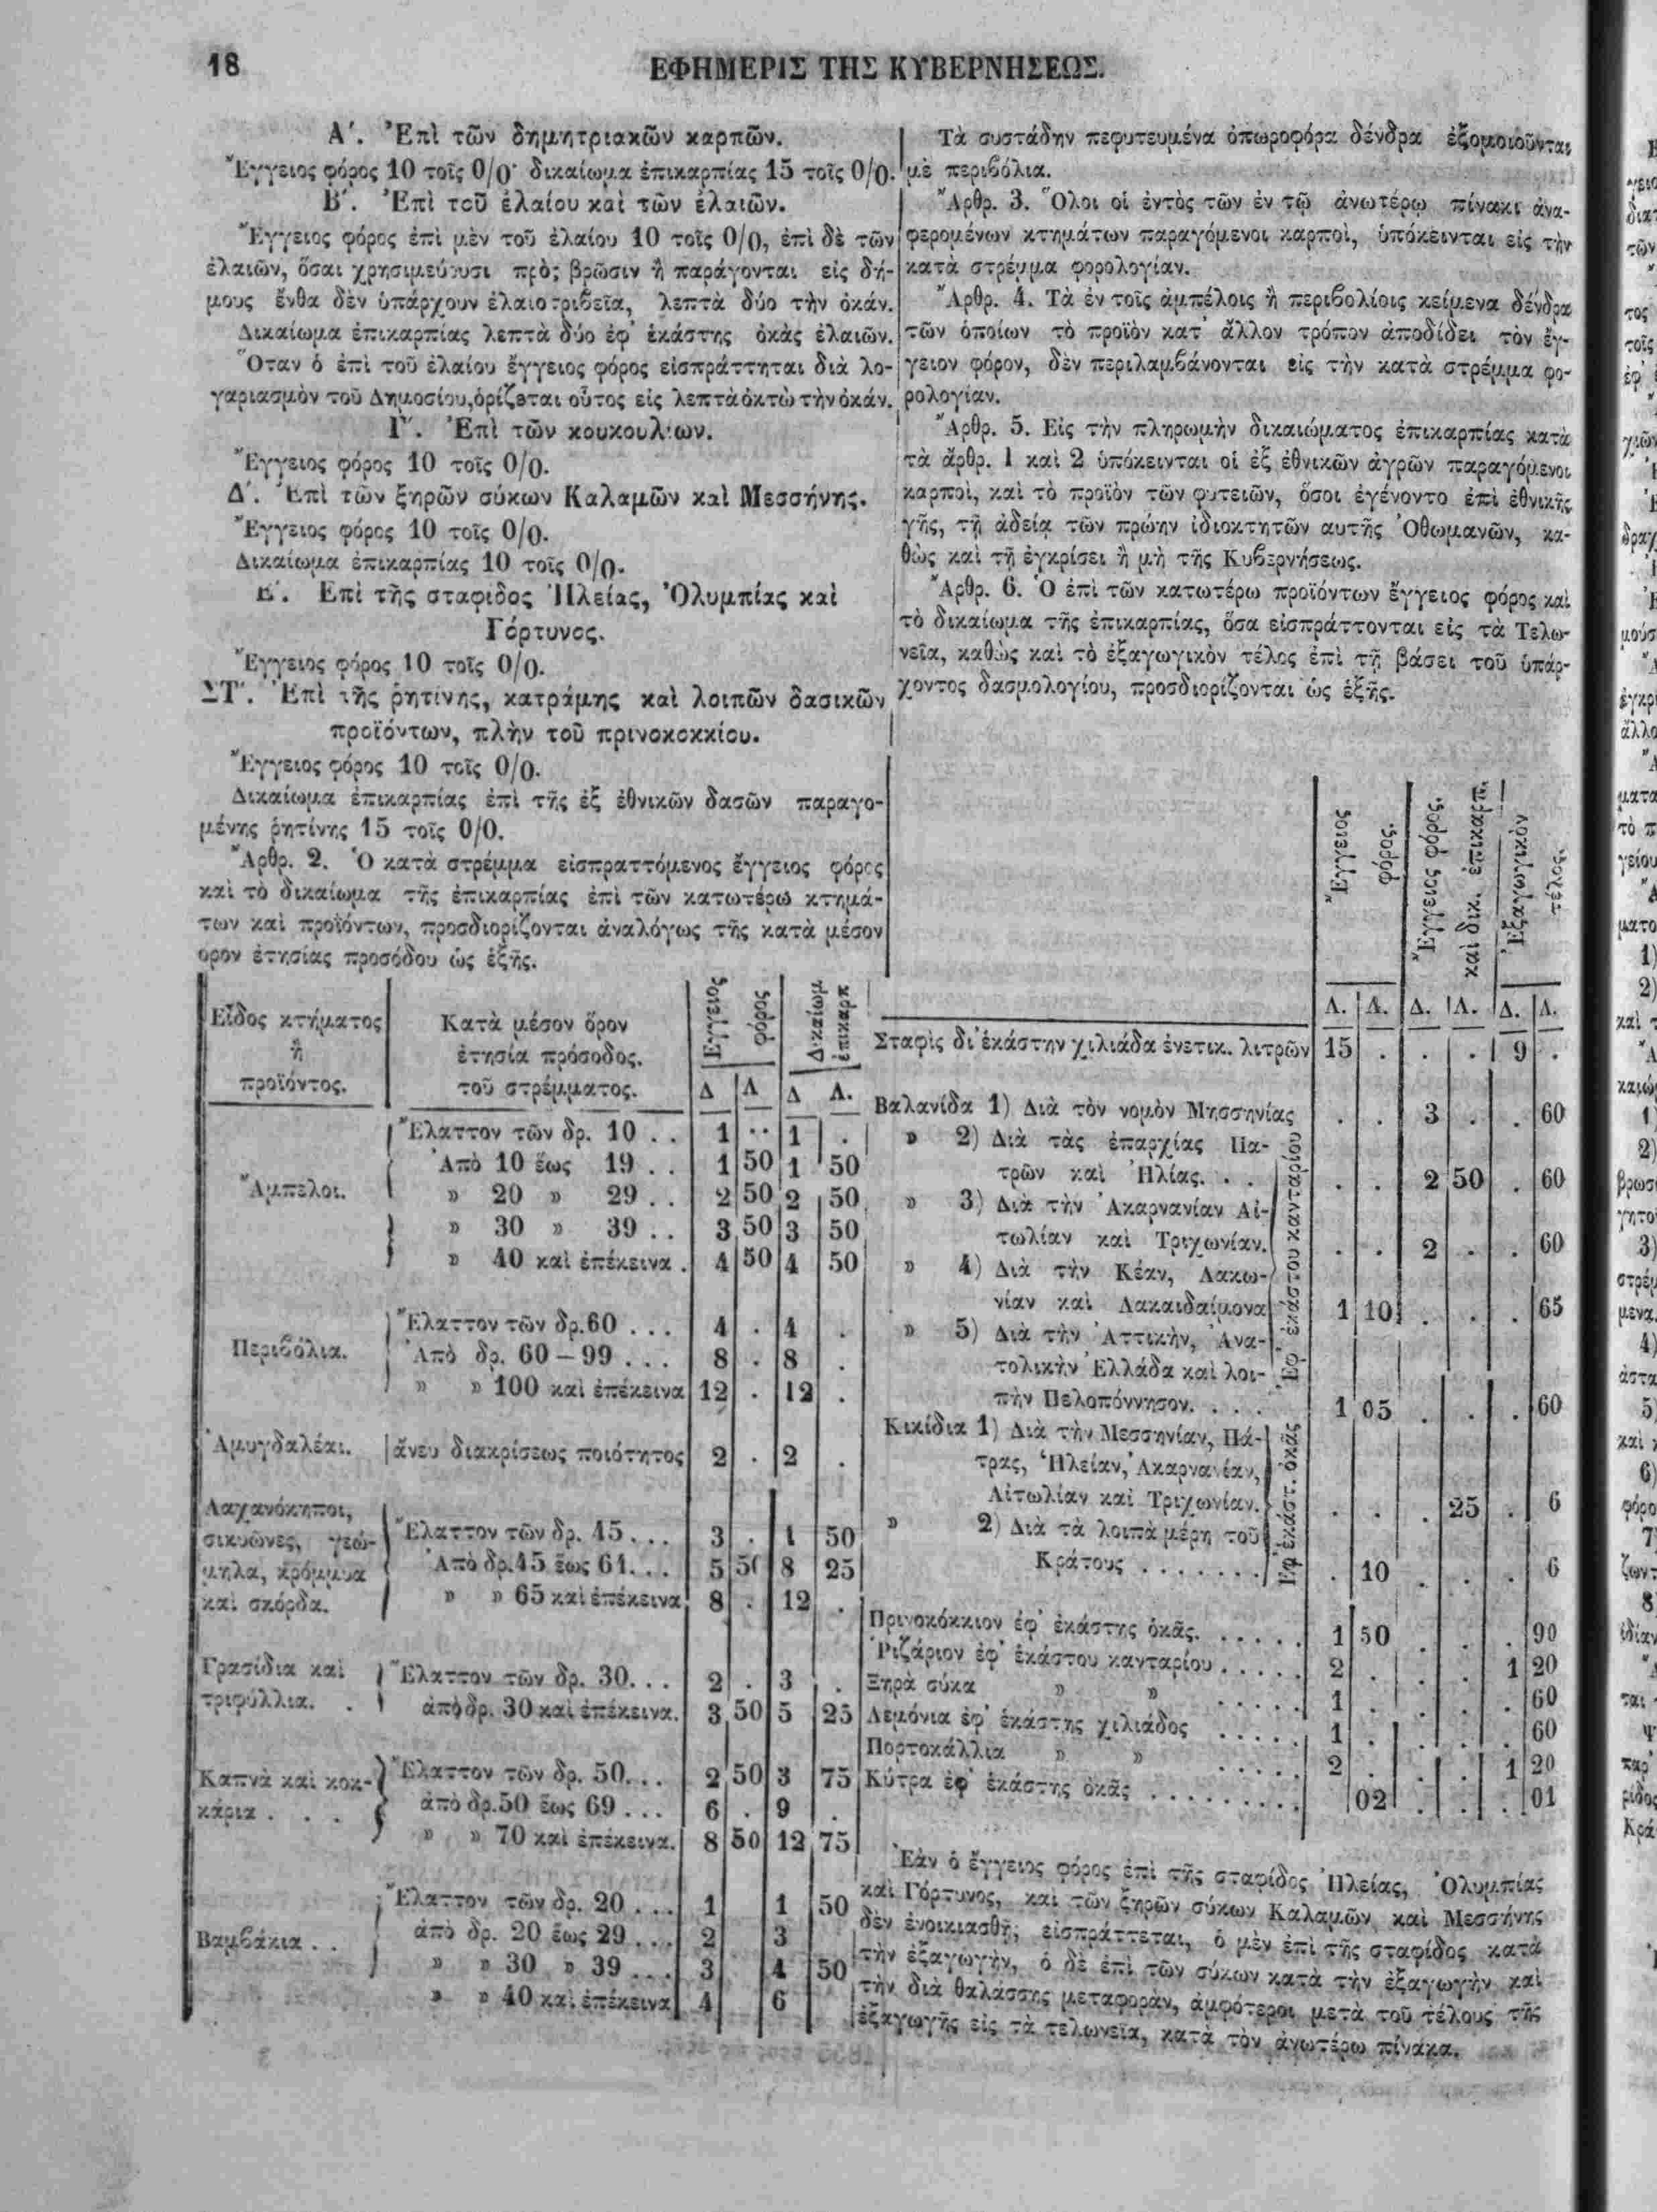 18
ΕΦΗΜΕΡΙΣ ΤΗΣ ΚΥΒΕΡΝΗΣΕΩΣ.
Α΄. Ἐπὶ τῶν δημητριακῶν καρπῶν.
Ἔγγειος φόρος 10 τοῖς 0/0· δικαίωμα ἐπικαρπίας 15 τοῖς 0/0.
Β΄. Ἐπὶ τοῦ ἐλαίου καὶ τῶν ἐλαιῶν.
Ἔγγειος φόρος ἐπὶ μὲν τοῦ ἐλαίου 10 τοῖς 0/0, ἐπὶ δὲ τῶν
ἐλαιῶν, ὅσαι χρησιμεύουσι πρὸς βρῶσιν ἢ παράγονται εἰς δή-
μους ἔνθα δὲν ὑπάρχουν ἐλαιοτριβεῖα, λεπτὰ δύο τὴν ὀκάν.
Δικαίωμα ἐπικαρπίας λεπτὰ δύο ἐφ᾽ ἑκάστης ὀκᾶς ἐλαιῶν.
Ὅταν ὁ ἐπὶ τοῦ ἐλαίου ἔγγειος φόρος εἰσπράττηται διὰ λο-
γαριασμὸν τοῦ Δημοσίου, ὁρίζεται οὗτος εἰς λεπτὰ ὀκτὼ τὴν ὀκάν.
Γ΄. Ἐπὶ τῶν κουκουλίων.
Ἔγγειος φόρος 10 τοῖς 0/0.
Δ΄. Ἐπὶ τῶν ξηρῶν σύκων Καλαμῶν καὶ Μεσσήνης.
Ἔγγειος φόρος 10 τοῖς 0/0.
Δικαίωμα ἐπικαρπίας 10 τοῖς 0/0.
Ε΄. Ἐπὶ τῆς σταφίδος Ἠλείας, Ὀλυμπίας καὶ
Γόρτυνος.
Ἔγγειος φόρος 10 τοῖς 0/0.
ΣΤ΄. Ἐπὶ τῆς ῥητίνης, κατράμης καὶ λοιπῶν δασικῶν
προϊόντων, πλὴν τοῦ πρινοκοκκίου.
Ἔγγειος φόρος 10 τοῖς 0/0.
Δικαίωμα ἐπικαρπίας ἐπὶ τῆς ἐξ ἐθνικῶν δασῶν παραγο-
μένης ῥητίνης 15 τοῖς 0/0.
Ἄρθρ. 2. Ὁ κατὰ στρέμμα εἰσπραττόμενος ἔγγειος φόρος
καὶ τὸ δικαίωμα τῆς ἐπικαρπίας ἐπὶ τῶν κατωτέρω κτημά-
των καὶ προϊόντων, προσδιορίζονται ἀναλόγως τῆς κατὰ μέσον
ὅρον ἐτησίας προσόδου ὡς ἑξῆς.
Εἶδος κτήματος ἢ προϊόντος. Κατὰ μέσον ὅρον ἐτησία πρόσοδος. τοῦ στρέμματος. Ἔγγειος φόρος Δικαίωμ ἐπικαρπ
Δ Λ Δ Λ.
Ἔλαττον τῶν δρ. 10 . . 1 . . 1 .
Ἀπὸ 10 ἕως 19 . . 1 50 1 50
Ἄμπελοι. » 20 » 29 . . 2 50 2 50
» 30 » 39 . . 3 50 3 50
» 40 καὶ ἐπέκεινα . 4 50 4 50
Ἔλαττον τῶν δρ. 60 . . . 4 . 4 .
Περιβόλια. Ἀπὸ δρ. 60 – 99 . . . 8 . 8 .
» » 100 καὶ ἐπέκεινα 12 . 12 .
Ἀμυγδαλέαι. ἄνευ διακρίσεως ποιότητος 2 . 2 .
Λαχανόκηποι,
σικυῶνες, γεώ- Ἔλαττον τῶν δρ. 45 . . . 3 . 1 50
μηλα, κρόμμυα Ἀπὸ δρ. 45 ἕως 64 . . . 5 50 8 25
καὶ σκόρδα. » » 65 καὶ ἐπέκεινα 8 . 12 .
Γρασίδια καὶ Ἔλαττον τῶν δρ. 30 . . . 2 . 3 .
τριφύλλια. . ἀπὸ δρ. 30 καὶ ἐπέκεινα. 3 50 5 25
Καπνὰ καὶ κοκ- Ἔλαττον τῶν δρ. 50 . . . 2 50 3 75
κάρια . . . ἀπὸ δρ. 50 ἕως 69 . . . 6 . 9 .
» » 70 καὶ ἐπέκεινα. 8 50 12 75
Ἔλαττον τῶν δρ. 20 . . . 1 1 50
Βαμβάκια . . ἀπὸ δρ. 20 ἕως 29 . . . 2 3
» » 30 » 39 . . . 3 4 50
» » 40 καὶ ἐπέκεινα 4 6
Τὰ συστάδην πεφυτευμένα ὀπωροφόρα δένδρα ἐξομοιοῦνται
μὲ περιβόλια.
Ἄρθρ. 3. Ὅλοι οἱ ἐντὸς τῶν ἐν τῷ ἀνωτέρω πίνακι ἀνα-
φερομένων κτημάτων παραγόμενοι καρποὶ, ὑπόκεινται εἰς τὴν
κατὰ στρέμμα φορολογίαν.
Ἄρθρ. 4. Τὰ ἐν τοῖς ἀμπέλοις ἢ περιβολίοις κείμενα δένδρα
τῶν ὁποίων τὸ προϊὸν κατ᾽ ἄλλον τρόπον ἀποδίδει τὸν ἔγ-
γειον φόρον, δὲν περιλαμβάνονται εἰς τὴν κατὰ στρέμμα φο-
ρολογίαν.
Ἄρθρ. 5. Εἰς τὴν πληρωμὴν δικαιώματος ἐπικαρπίας κατὰ
τὰ ἄρθρ. 1 καὶ 2 ὑπόκεινται οἱ ἐξ ἐθνικῶν ἀγρῶν παραγόμενοι
καρποὶ, καὶ τὸ προϊὸν τῶν φυτειῶν, ὅσοι ἐγένοντο ἐπὶ ἐθνικῆς
γῆς, τῇ ἀδείᾳ τῶν πρώην ἰδιοκτητῶν αυτῆς Ὀθωμανῶν, κα-
θὼς καὶ τῇ ἐγκρίσει ἢ μὴ τῆς Κυβερνήσεως.
Ἄρθρ. 6. Ὁ ἐπὶ τῶν κατωτέρω προϊόντων ἔγγειος φόρος καὶ
τὸ δικαίωμα τῆς ἐπικαρπίας, ὅσα εἰσπράττονται εἰς τὰ Τελω-
νεῖα, καθὼς καὶ τὸ ἐξαγωγικὸν τέλος ἐπὶ τῇ βάσει τοῦ ὑπάρ-
χοντος δασμολογίου, προσδιορίζονται ὡς ἑξῆς.
Ἔγγειος φόρος. Ἔγγειος φόρος, καὶ δικ. ἐπικαρπ. Ἐξαγωγικὸν τέλος.
Δ. Λ. Δ. Λ. Δ. Λ.
Σταφὶς δι᾽ ἑκάστην χιλιάδα ἐνετικ. λιτρῶν 15 . . . 9 .
Βαλανίδα 1) Διὰ τὸν νομὸν Μησσηνίας . . 3 . . 60
» 2) Διὰ τὰς ἐπαρχίας Πα-
τρῶν καὶ Ἠλίας. . . . . 2 50 . 60
» 3) Διὰ τὴν Ἀκαρνανίαν Αἰ-
τωλίαν καὶ Τριχωνίαν. . . 2 . . 60
» 4) Διὰ τὴν Κέαν, Λακω-
νίαν καὶ Λακαιδαίμονα 1 10 . . . 65
» 5) Διὰ τὴν Ἀττικὴν, Ἀνα-
τολικὴν Ἑλλάδα καὶ λοι-
πὴν Πελοπόννησον. . . . 1 05 . . . 60
Ἐφ᾽ ἑκάστου κανταρίου
Κικίδια 1) Διὰ τὴν Μεσσηνίαν, Πά-
τρας, Ἠλείαν, Ἀκαρνανίαν,
Αἰτωλίαν καὶ Τριχωνίαν. . . . 25 . 6
» 2) Διὰ τὰ λοιπὰ μέρη τοῦ
Κράτους . . . . . . . . 10 . . . 6
Ἐφ᾽ ἑκάστ. ὀκᾶς
Πρινοκόκκιον ἐφ᾽ ἑκάστης ὀκᾶς. . . . . . 1 50 . . . 90
Ῥιζάριον ἐφ᾽ ἑκάστου κανταρίου . . . . . 2 . . . 1 20
Ξηρὰ σύκα » » . . . . . 1 . . . . 60
Λεμόνια ἐφ᾽ ἑκάστης χιλιάδος . . . . . 1 . . . . 60
Πορτοκάλλια » » . . . . . 2 . . . 1 20
Κύτρα ἐφ᾽ ἑκάστης ὀκᾶς . . . . . . . . . 02 . . . 01
Ἐὰν ὁ ἔγγειος φόρος ἐπὶ τῆς σταφίδος Ἠλείας, Ὀλυμπίας
καὶ Γόρτυνος, καὶ τῶν ξηρῶν σύκων Καλαμῶν καὶ Μεσσήνης
δὲν ἐνοικιασθῇ, εἰσπράττεται, ὁ μὲν ἐπὶ τῆς σταφίδος κατὰ
τὴν ἐξαγωγὴν, ὁ δὲ ἐπὶ τῶν σύκων κατὰ τὴν ἐξαγωγὴν καὶ
τὴν διὰ θαλάσσης μεταφορὰν, ἀμφότεροι μετὰ τοῦ τέλους τῆς
ἐξαγωγῆς εἰς τὰ τελωνεῖα, κατὰ τὸν ἀνωτέρω πίνακα.